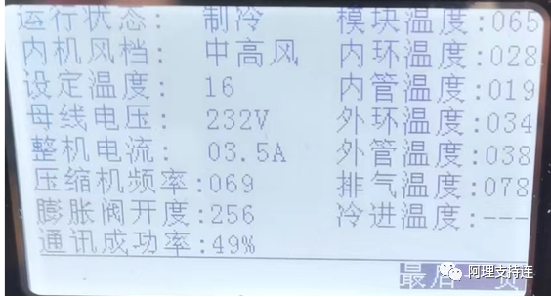 运行状态: 制冷 模块温度:065
内机风档: 中高风 内环温度:028
设定温度: 16 内管温度:019
母线电压: 232V 外环温度:034
整机电流: 03.5A 外管温度:038
压缩机频率:069 排气温度:078
膨胀阀开度:256 冷进温度:---
通讯成功率:49%
最后一页
阿理支持连